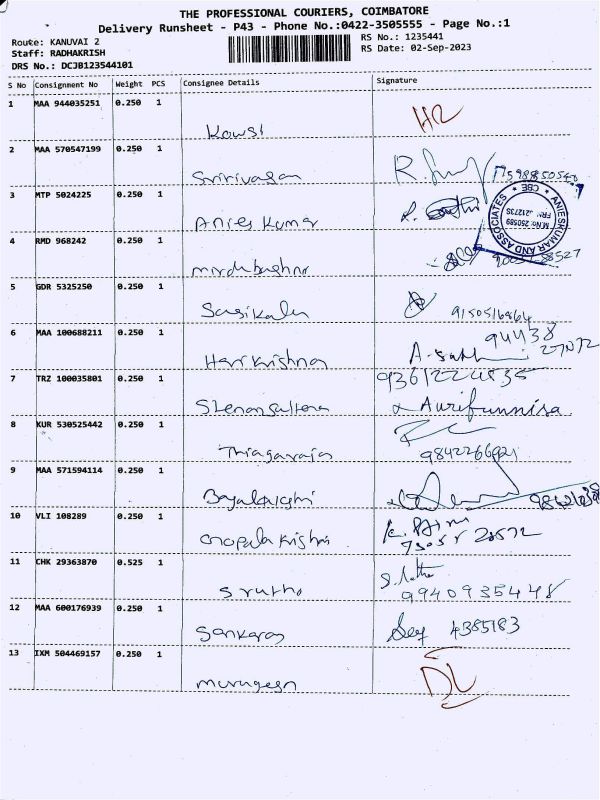 THE PROFESSIONAL COURIERS, COIMBATORE
Delivery Runsheet - P43 - Phone No.:0422-3505555 - Page No.:1
Route: KANUVAI 2 RS No.: 1235441
Staff: RADHAKRISH RS Date: 02-Sep-2023
DRS No.: DCJB123544101
S No Consignment No Weight PCS Consignee Details Signature
1 MAA 944035251 0.250 1
Kowsi
2 MAA 570547199 0.250 1
Srinivasan
3 MTP 5024225 0.250 1
Anies Kumar
ANIESKUMAR AND ASSOCIATES
CBE
M.No: 250589
FRN: 021273S
4 RMD 968242 0.250 1
5 GDR 5325250 0.250 1
Sasikala 9150516864
6 MAA 100688211 0.250 1 94438
Hari Krishna 27072
7 TRZ 100035801 0.250 1 9361224835
Aurifunnisa
8 KUR 530525442 0.250 1
Thiagaraja 9842266921
9 MAA 571594114 0.250 1
10 VLI 108289 0.250 1
Gopala Krishn
11 CHK 29363870 0.525 1
Srutho 9940935448
12 MAA 600176939 0.250 1
Sankaras 4385183
13 IXM 504469157 0.250 1 DL
murugesn